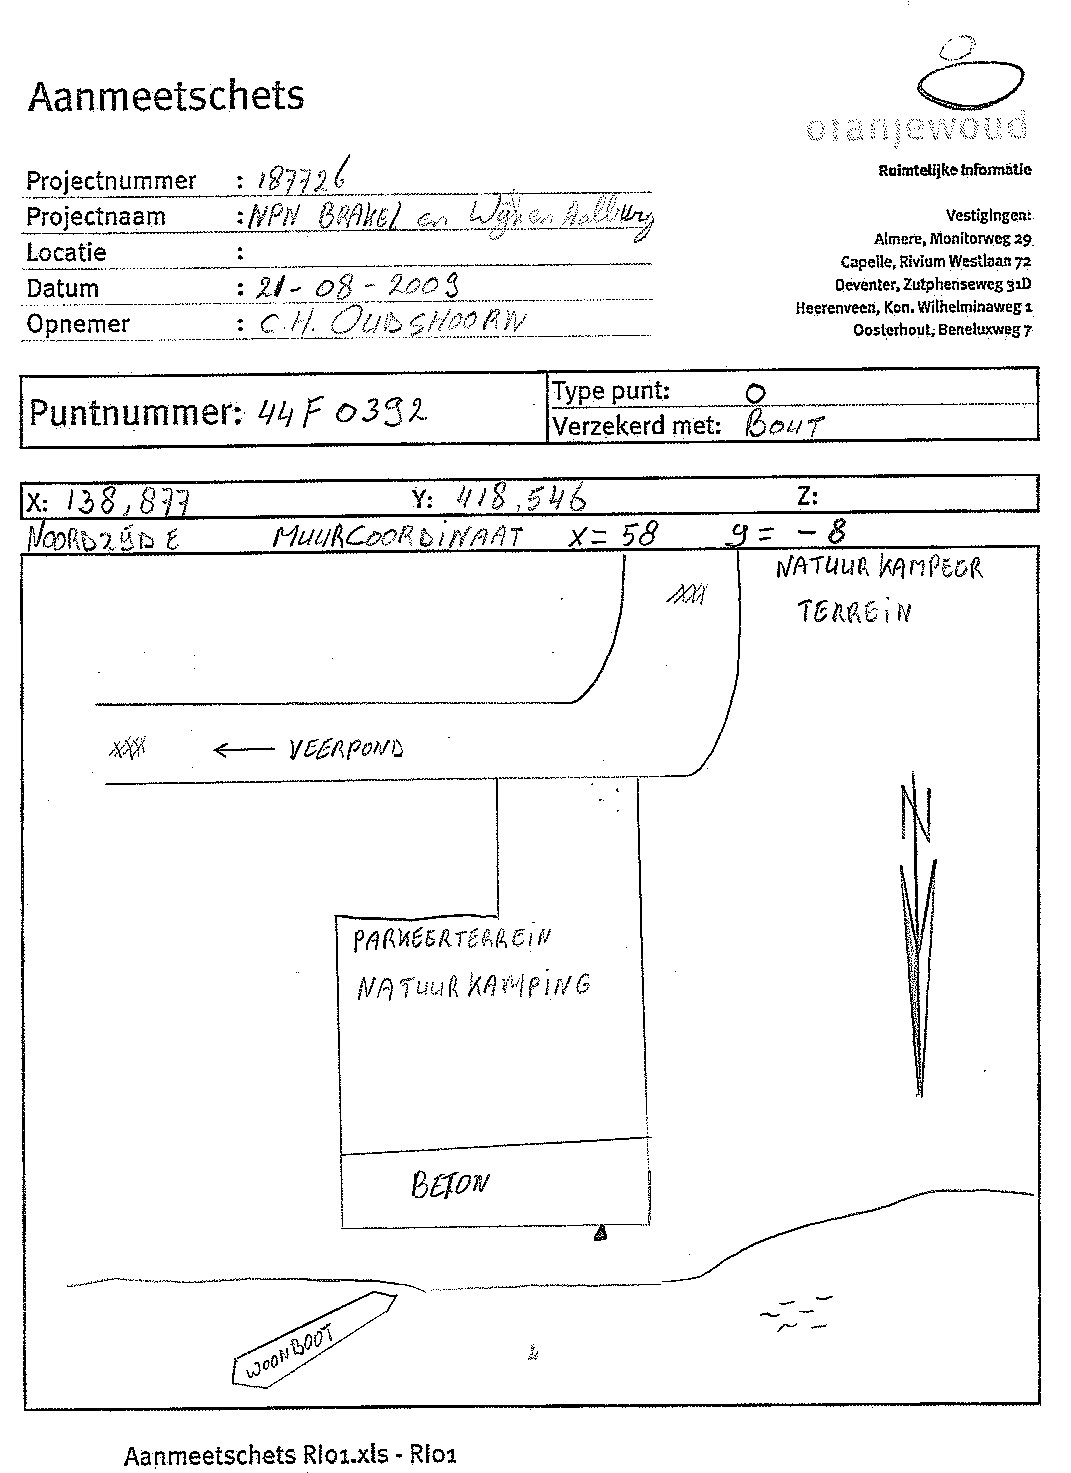 Aanmeetschets
oranjewoud
Ruimtelijke Informatie
Projectnummer : 187726
Projectnaam : NPN BRAKEL en Wijk en Aalburg
Locatie :
Datum : 21-08-2009
Opnemer : C.H. OUDSHOORN
Vestigingen:
Almere, Monitorweg 29
Capelle, Rivium Westlaan 72
Deventer, Zutphenseweg 31D
Heerenveen, Kon. Wilhelminaweg 1
Oosterhout, Beneluxweg 7
Puntnummer: 44F0392
Type punt: O
Verzekerd met: BOUT
X: 138,877 Y: 418,546 Z:
NOORDZIJDE MUURCOORDINAAT X=58 y=-8
NATUURKAMPEER
TERREIN
← VEERPOND
N
PARKEERTERREIN
NATUURKAMPING
BETON
WOONBOOT
Aanmeetschets RI01.xls - RI01